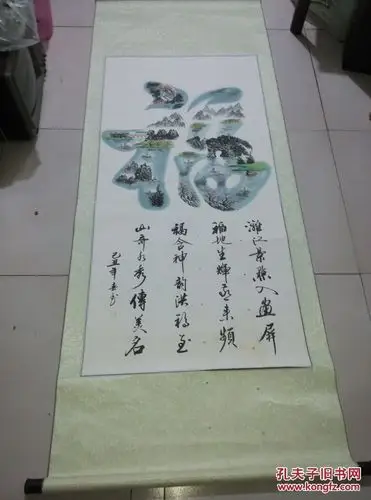 福
漓江景勝入畫屏
福地生輝喜来頻
福含神韵洪福至
山奇水秀傳美名
己丑年
孔夫子旧书网
www.kongfz.com